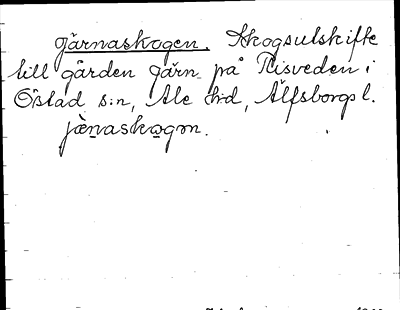 Järnaskogen. Skogsutskifte
till gården Järn på Risveden i
Östad s:n, Ale h:d, Älfsborgs l.
jæ̀nasko̱gɔn.